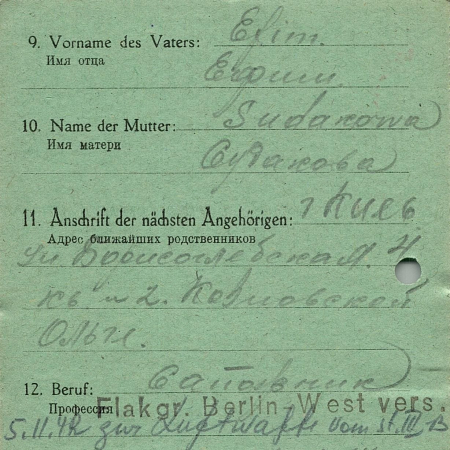 9. Vorname des Vaters: Efim.
Имя отца Ефим
10. Name der Mutter: Sudakowa
Имя матери Судакова
11. Anschrift der nächsten Angehörigen: г Киев
Адрес ближайших родственников
ул Борисоглебская. 4
кв № 2. Козловской
Ольге.
12. Beruf: Сапожник
Профессия
Flakgr. Berlin-West vers.
5.11.42 zur Luftwaffe vom